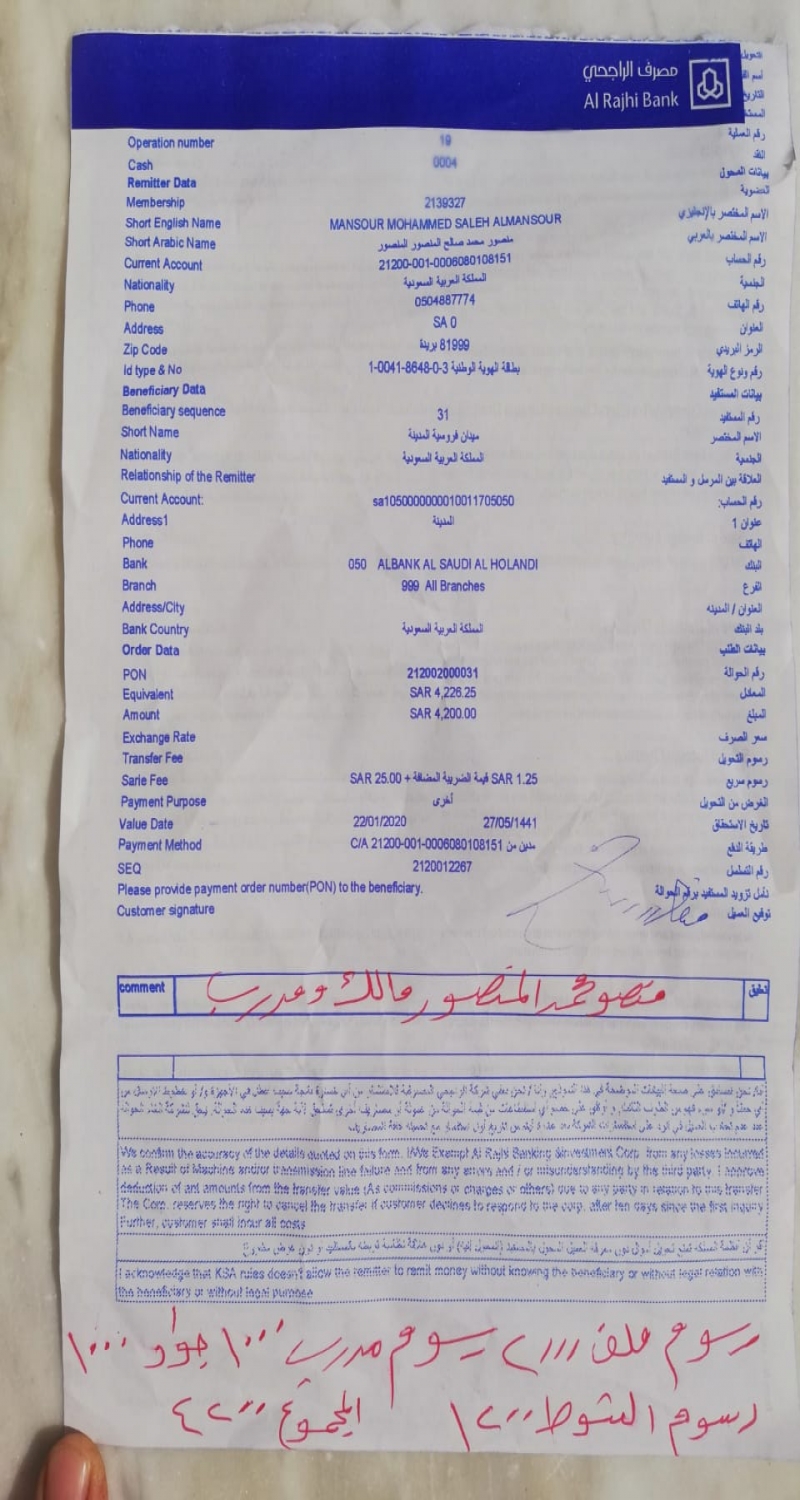 مصرف الراجحي
Al Rajhi Bank
Operation number 19 رقم العملية
Cash 0004 النقد
Remitter Data بيانات المحول
Membership 2139327 العضوية
Short English Name MANSOUR MOHAMMED SALEH ALMANSOUR الاسم المختصر بالإنجليزي
Short Arabic Name منصور محمد صالح المنصور المنصور الاسم المختصر بالعربي
Current Account 21200-001-0006080108151 رقم الحساب
Nationality المملكة العربية السعودية الجنسية
Phone 0504887774 رقم الهاتف
Address SA 0 العنوان
Zip Code 81999 بريدة الرمز البريدي
Id type & No بطاقة الهوية الوطنية 3-0-8648-0041-1 رقم ونوع الهوية
Beneficiary Data بيانات المستفيد
Beneficiary sequence 31 رقم المستفيد
Short Name ميدان فروسية المدينة الاسم المختصر
Nationality المملكة العربية السعودية الجنسية
Relationship of the Remitter العلاقة بين المرسل و المستفيد
Current Account: sa1050000000010011705050 رقم الحساب:
Address1 المدينة علوان 1
Phone الهاتف
Bank 050 ALBANK AL SAUDI AL HOLANDI البنك
Branch 999 All Branches الفرع
Address/City العنوان / المدينه
Bank Country المملكة العربية السعودية بلد البنك
Order Data بيانات الطلب
PON 212002000031 رقم الحوالة
Equivalent SAR 4,226.25 المعادل
Amount SAR 4,200.00 المبلغ
Exchange Rate سعر الصرف
Transfer Fee رسوم التحويل
Sarie Fee SAR 25.00 + قيمة الضريبة المضافة SAR 1.25 رسوم سريع
Payment Purpose أخرى الغرض من التحويل
Value Date 22/01/2020 27/05/1441 تاريخ الاستحقاق
Payment Method C/A 21200-001-0006080108151 مدين من طريقة الدفع
SEQ 2120012267 رقم التسلسل
Please provide payment order number(PON) to the beneficiary. نأمل تزويد المستفيد برقم الحوالة
Customer signature توقيع العميل
comment منصور محمد المنصور مالك ومدرب تعليق
We confirm the accuracy of the details quoted on this form. I/We Exempt Al Rajhi Banking &Investment Corp. from any losses incurred
as a Result of Machine and/or transmission line failure and from any errors and / or misunderstanding by the third party. I approve
deduction of ant amounts from the transfer value (As commissions or charges or others) due to any party in relation to this transfer
The Corp. reserves the right to cancel the transfer if customer declines to respond to the corp. after ten days since the first inquiry
Further, customer shall incur all costs
I acknowledge that KSA rules doesn't allow the remitter to remit money without knowing the beneficiary or without legal relation with
the beneficiary or without legal purpose
رسوم ملف ٢٠٠٠ رسوم مدرب ١٠٠٠ جواد ١٠٠٠
رسوم الشوط ١٢٠٠ المجموع ٤٢٠٠